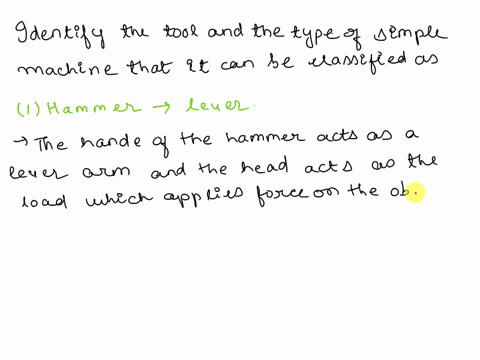 Identify the tool and the type of simple
machine that it can be classified as
(1) Hammer → lever.
→ The hande of the hammer acts as a
lever arm and the head acts as the
load which applies force on the ob.